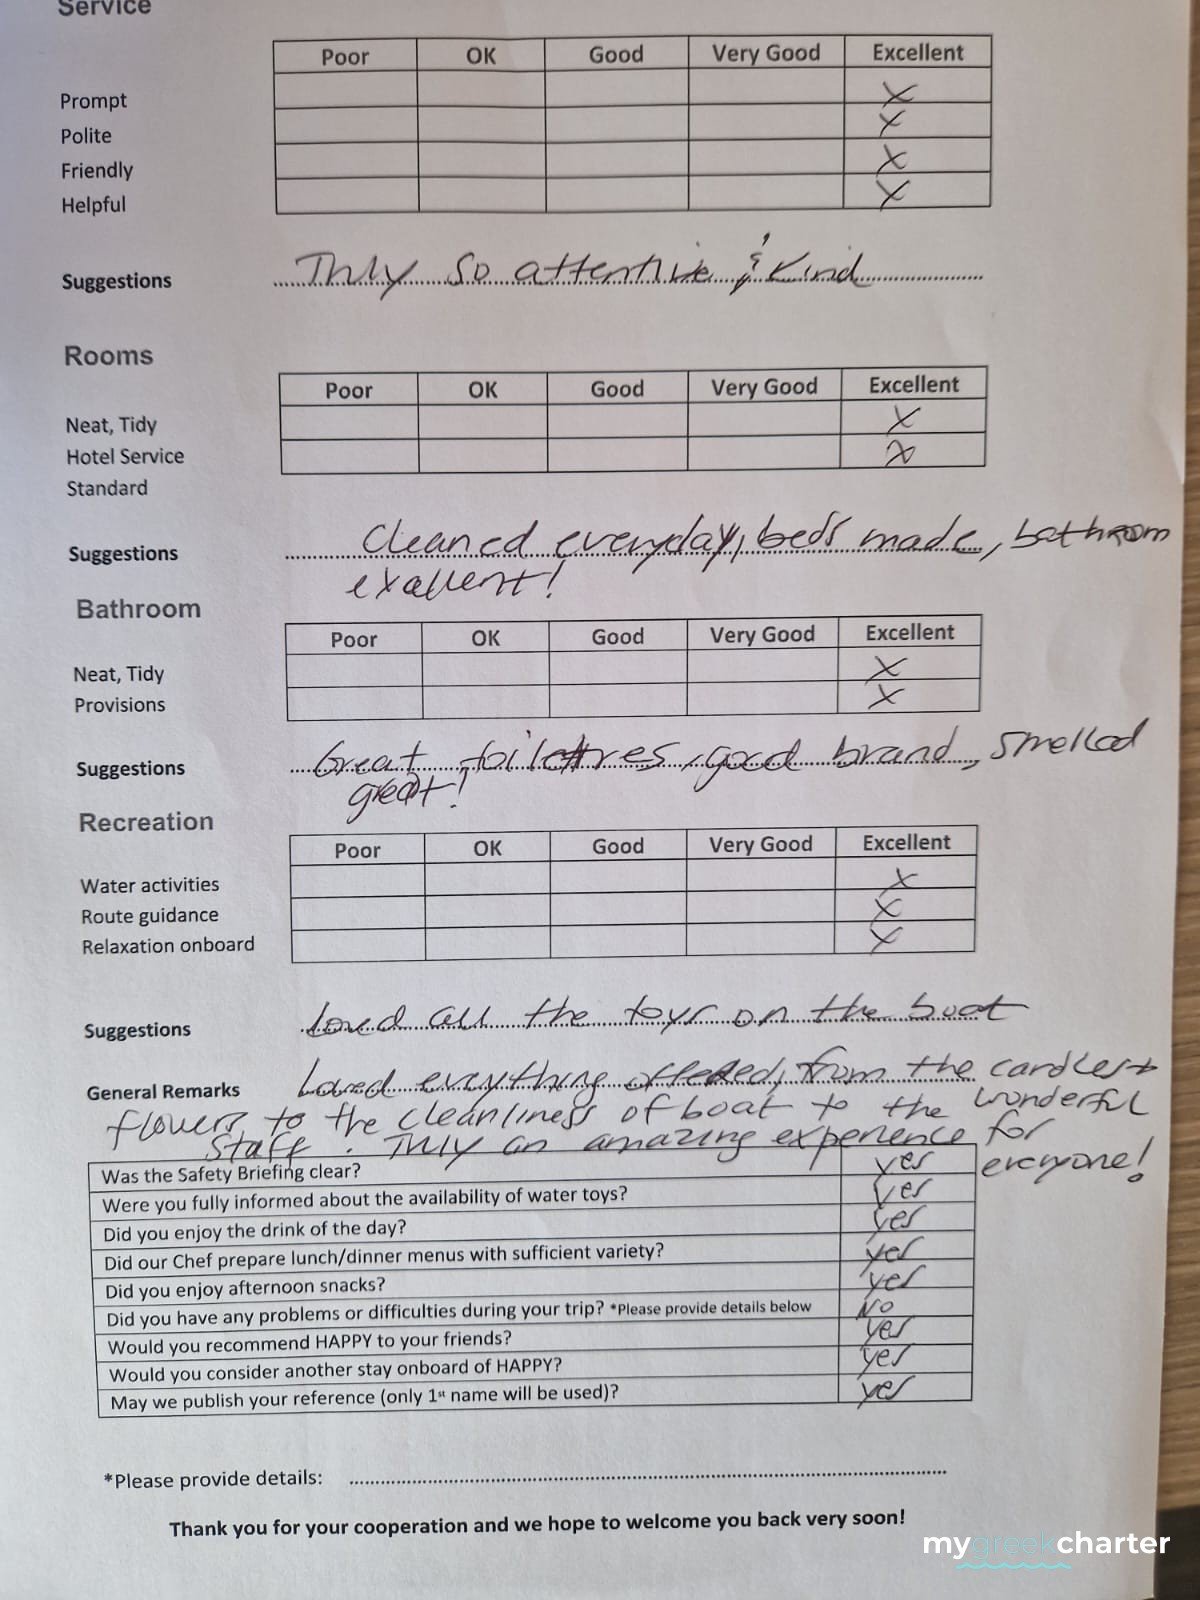 Service
Poor OK Good Very Good Excellent
Prompt X
Polite X
Friendly X
Helpful X
Suggestions Truly so attentive & kind
Rooms
Poor OK Good Very Good Excellent
Neat, Tidy X
Hotel Service X
Standard
Suggestions Cleaned everyday, beds made, bathroom
exellent!
Bathroom
Poor OK Good Very Good Excellent
Neat, Tidy X
Provisions X
Suggestions Great good brand, smelled
great!
Recreation
Poor OK Good Very Good Excellent
Water activities X
Route guidance X
Relaxation onboard X
Suggestions Loved all the toys on the boat
General Remarks Loved everything offered, from the candles +
flowers to the cleanliness of boat to the wonderful
staff. Truly an amazing experience for
everyone!
Was the Safety Briefing clear? yes
Were you fully informed about the availability of water toys? yes
Did you enjoy the drink of the day? yes
Did our Chef prepare lunch/dinner menus with sufficient variety? yes
Did you enjoy afternoon snacks? yes
Did you have any problems or difficulties during your trip? *Please provide details below No
Would you recommend HAPPY to your friends? yes
Would you consider another stay onboard of HAPPY? yes
May we publish your reference (only 1st name will be used)? yes
*Please provide details:
Thank you for your cooperation and we hope to welcome you back very soon!
mygreekcharter